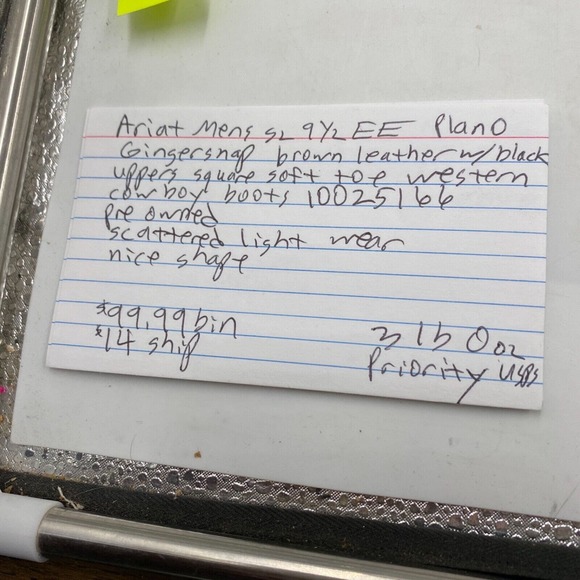 Ariat Mens sz 9½ EE Plano
Gingersnap brown leather w/ black
uppers square soft toe western
cowboy boots 10025166
pre owned
scattered light wear
nice shape
$99.99 bin
$14 ship
3 lb 0 oz
Priority USPS